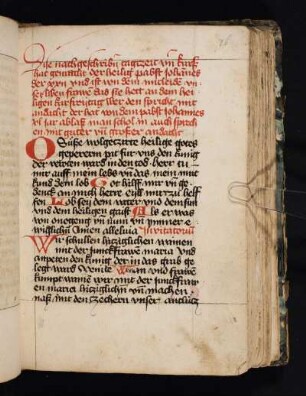 Dye nachgeschribn tagzeit vn kurß
hat gemacht der heilig pabst Johanes
der xxii und ist von dem mitleide vn
ser liben frawen das sie het an dem hei
ligen karfreytag wer den spricht mit
andacht der hat von dem pabst Johannes
vil iar ablas man schol in auch sprech
en mit guter vn grosser andacht
O Suße wolgezirte heilige gotes
gepererin pit fur uns den kunig
der ... in den tod Herr tu
mir auff mein lebs vn das mein mut
kund dein lob Got hilff mir vn ge
denck an mich herre eyl mir zu helf
fen Lob sey dem vater und dem sun
und dem heiligen geist Als er was
von anegeng vn nun vn ymmer e
wiglichn Amen alleluia Invitatoriu
Wir schullen hiczigleichen weinen
mit der junckfrawen maria vnd
anpeten den kunig der in das grab ge
legt ward Venite Man und frawe
kumpt wainet wir mit der junckfraw
en maria hiczigleichn vn machen
naß mit den zehern unser antlucz